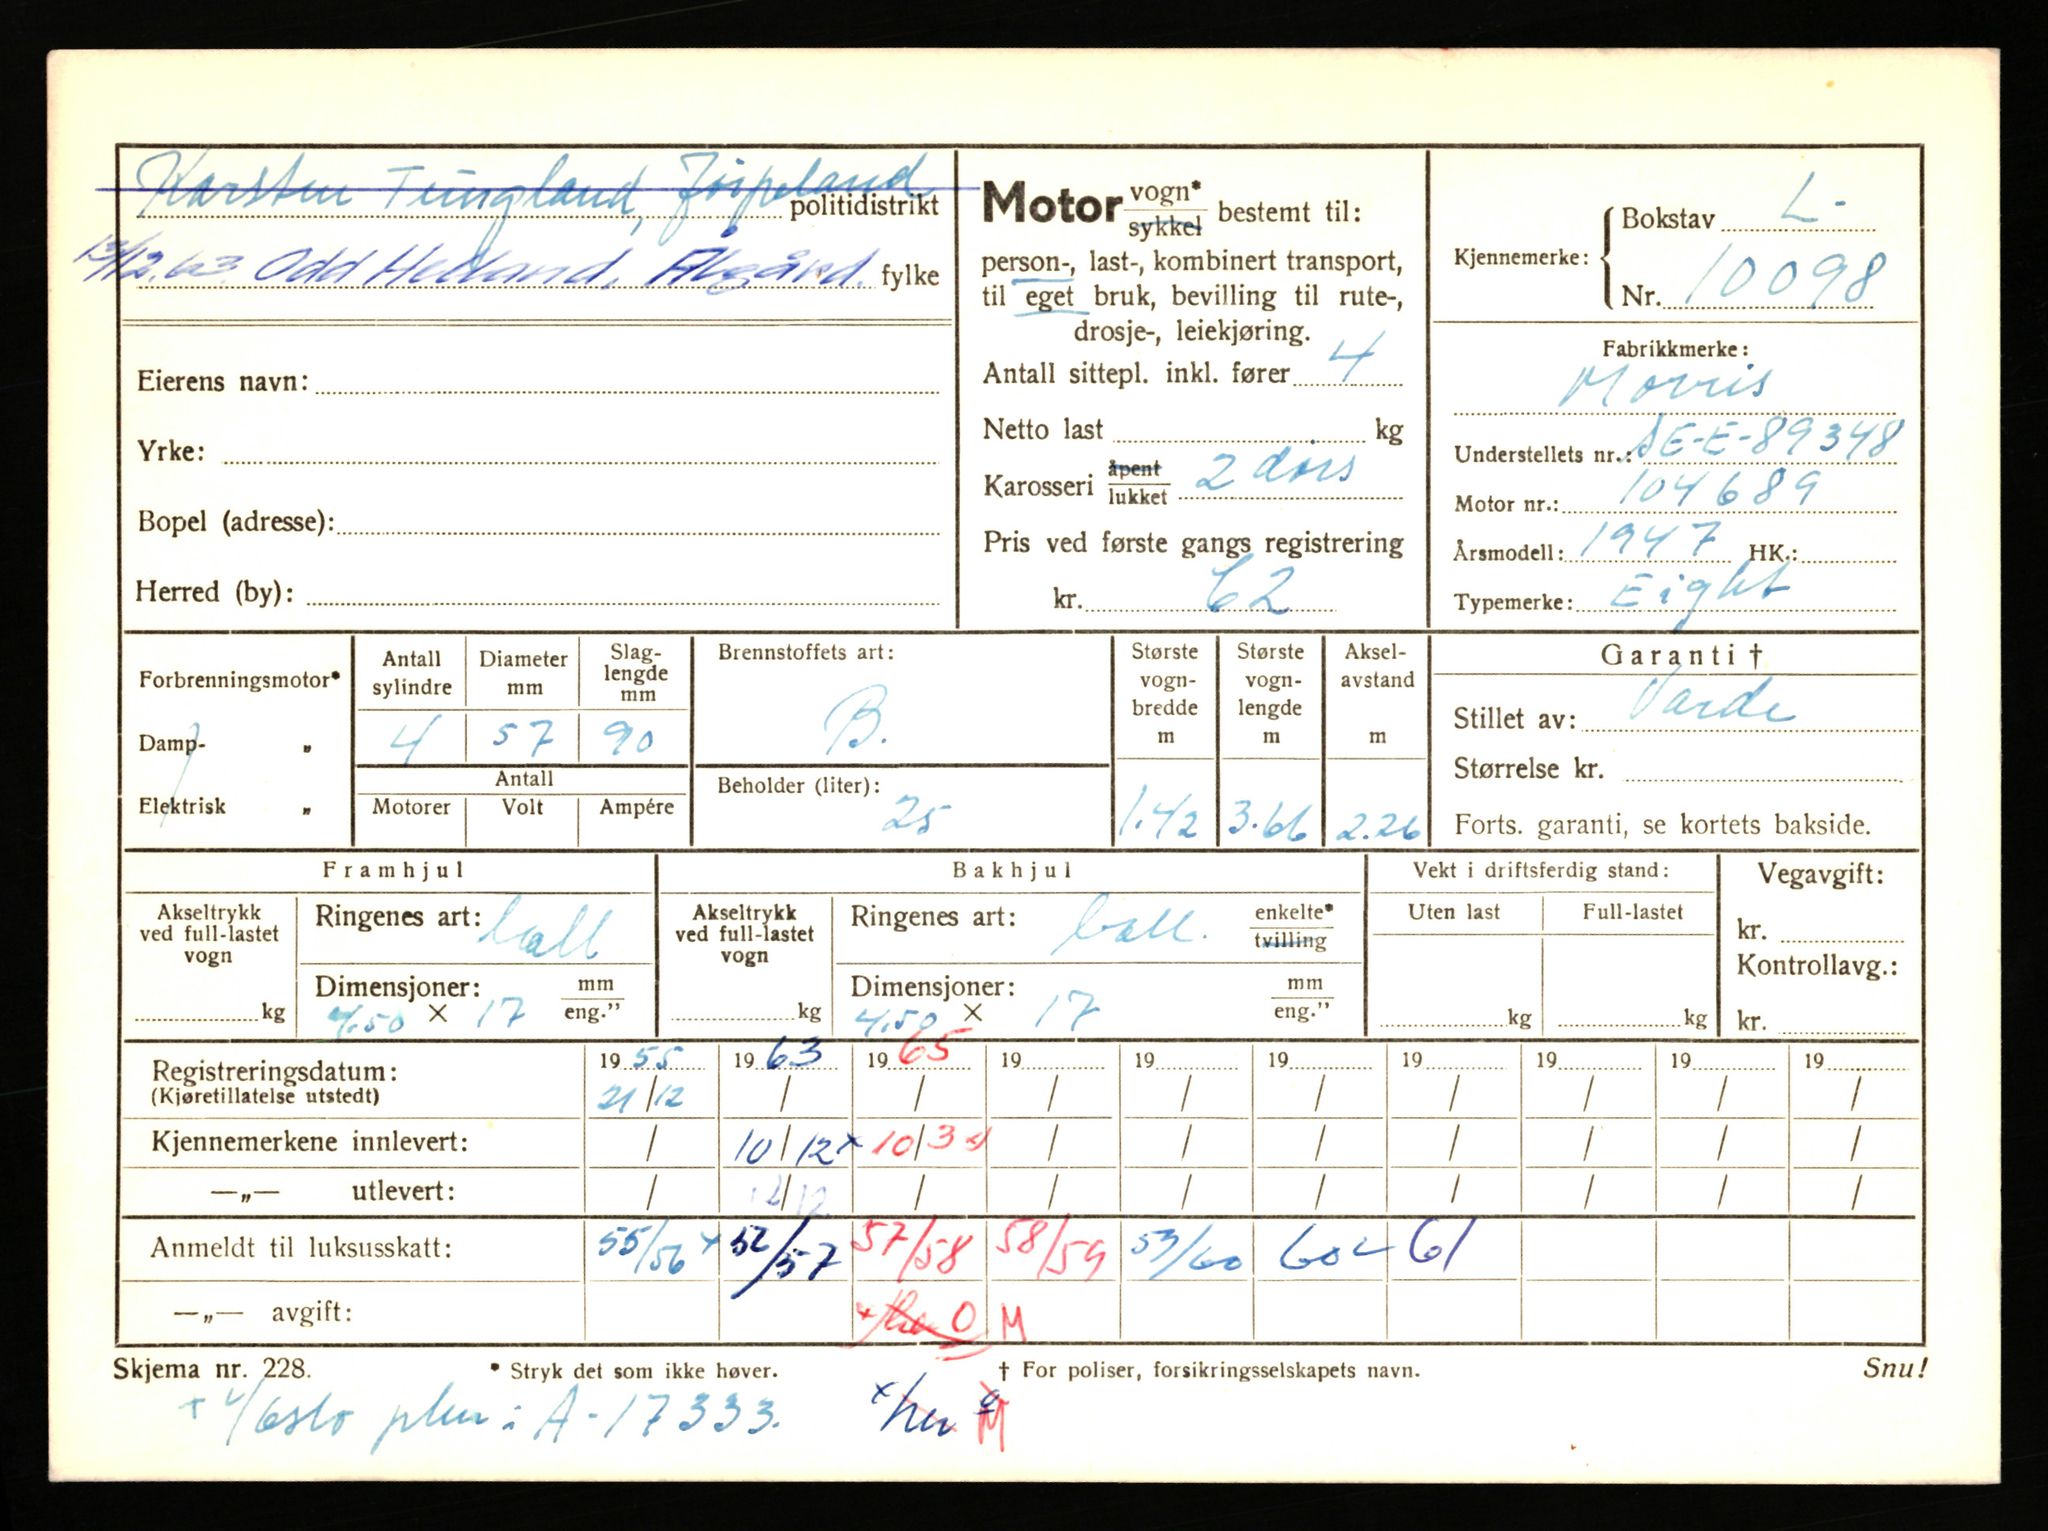 Karsten Tungland, Jørpeland politidistrikt
12/12.63. Odd Helland, Ålgård. fylke
Eierens navn:
Yrke:
Bopel (adresse):
Herred (by):
Motor vogn* sykkel bestemt til:
person-, last-, kombinert transport,
til eget bruk, bevilling til rute-,
drosje-, leiekjøring.
Antall sittepl. inkl. fører 4
Netto last kg
Karosseri åpent lukket 2 dørs
Pris ved første gangs registrering
kr. 62
Kjennemerke: Bokstav L-
Nr. 10098
Fabrikkmerke:
Morris
Understellets nr.: SE-E-89348
Motor nr.: 104689
Årsmodell: 1947 HK.:
Typemerke: Eight
Forbrenningsmotor*
Damp- "
Elektrisk "
Antall sylindre
Diameter mm
Slag-
lengde
mm
4 57 90
Antall
Motorer Volt Ampére
Brennstoffets art:
B.
Beholder (liter):
25
Største
vogn-
bredde
m
1.42
Største
vogn-
lengde
m
3.66
Aksel-
avstand
m
2.26
Garanti †
Stillet av: Varde
Størrelse kr.
Forts. garanti, se kortets bakside.
Framhjul
Akseltrykk
ved full-lastet
vogn
kg
Ringenes art: ball
Dimensjoner: mm
4.50 × 17 eng."
Bakhjul
Akseltrykk
ved full-lastet
vogn
kg
Ringenes art: ball. enkelte*
tvilling
Dimensjoner: mm
4.50 × 17 eng."
Vekt i driftsferdig stand:
Uten last Full-lastet
kg kg
Vegavgift:
kr.
Kontrollavg.:
kr.
Registreringsdatum: 19 55 19 63 19 65 19 19 19 19 19 19 19
(Kjøretillatelse utstedt) 21/12 / / / / / / / / /
Kjennemerkene innlevert: / 10/12 x 10/3 / / / / / / /
—„— utlevert: / 12/12 / / / / / / / /
Anmeldt til luksusskatt: 55/56 x 52/57 57/58 58/59 53/60 60 61
—„— avgift: O M
Skjema nr. 228. * Stryk det som ikke høver. † For poliser, forsikringsselskapets navn. Snu!
+ 4/6 Oslo A-17333. x her M